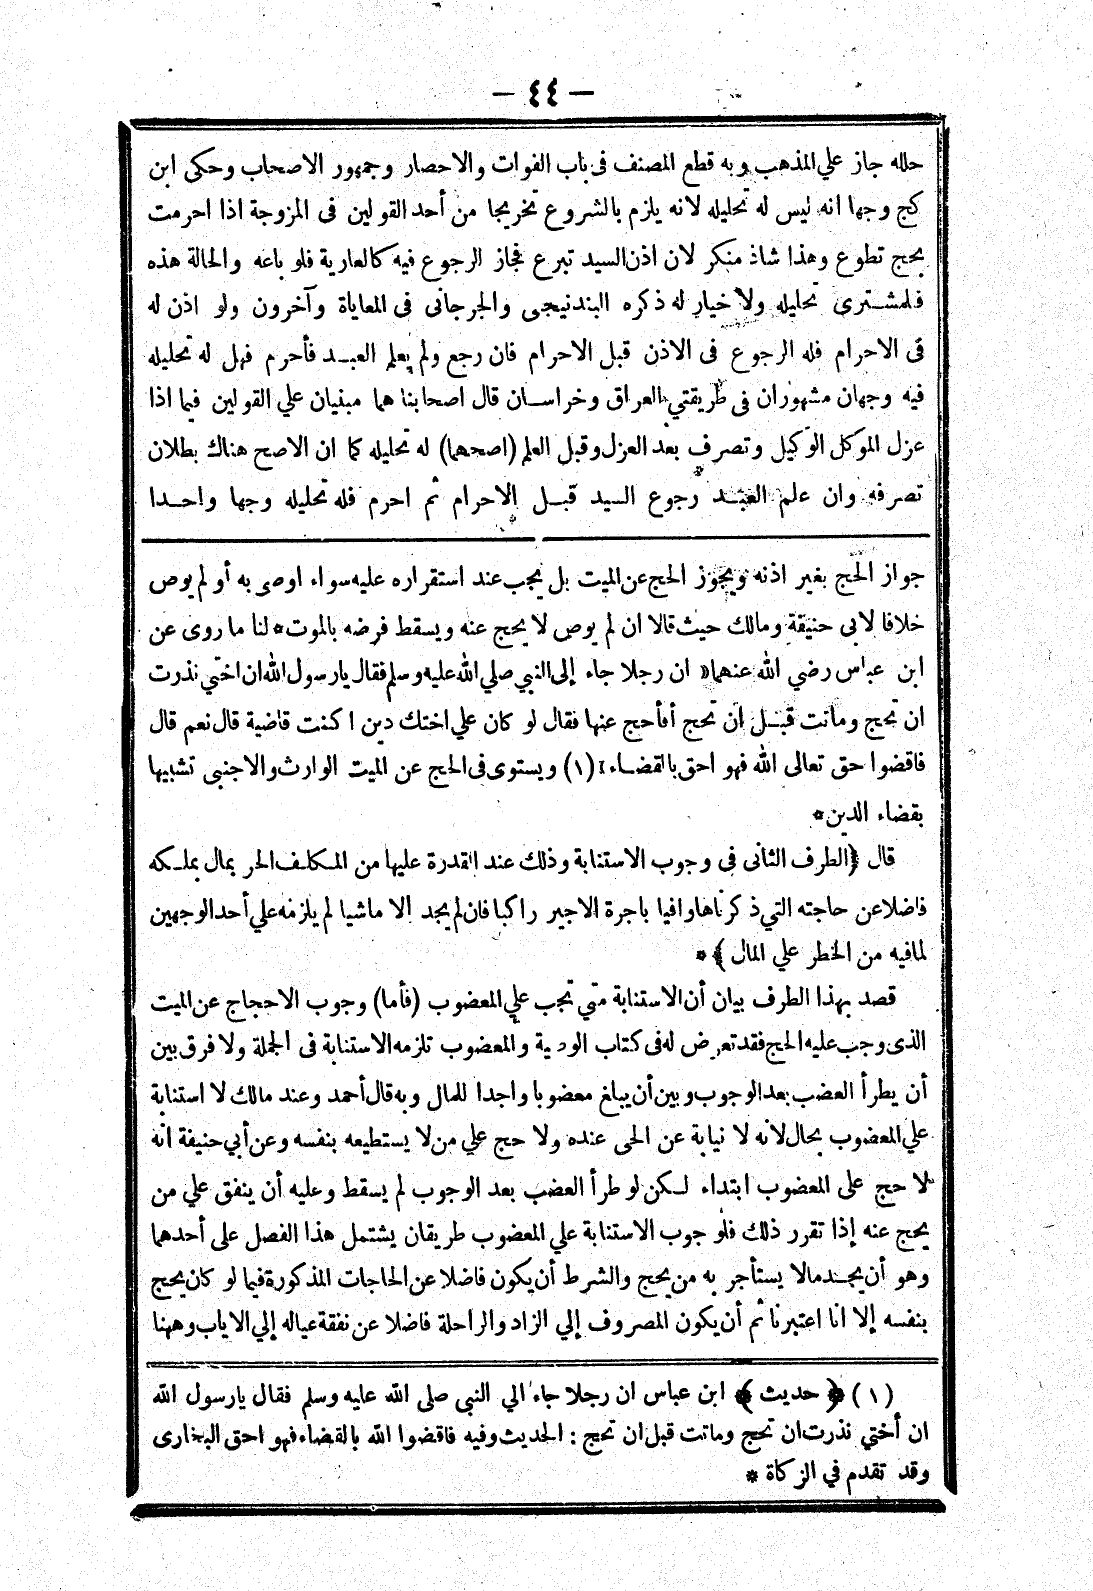 — ٤٤ —
حلله جاز علي المذهب وبه قطع المصنف فى باب الفوات والاحصار وجمهور الاصحاب وحكى ابن
كج وجها انه ليس له تحليله لانه يلزم بالشروع تخريجا من أحد القولين فى المزوجة اذا احرمت
بحج تطوع وهذا شاذ منكر لان اذن السيد تبرع فجاز الرجوع فيه كالعارية فلو باعه والحالة هذه
فلمشترى تحليله ولا خيار له ذكره البندنيجى والجرجانى فى المعاياة وآخرون ولو اذن له
فى الاحرام فله الرجوع فى الاذن قبل الاحرام فان رجع ولم يعلم العبد فأحرم فهل له تحليله
فيه وجهان مشهوران فى طريقتي العراق وخراسان قال اصحابنا هما مبنيان علي القولين فيما اذا
عزل الموكل الوكيل وتصرف بعد العزل وقبل العلم (اصحهما) له تحليله كما ان الاصح هناك بطلان
تصرفه وان علم العبد رجوع السيد قبل الاحرام ثم احرم فله تحليله وجها واحدا
جواز الحج بغير اذنه ويجوز الحج عن الميت بل يجب عند استقراره عليه سواء اوصى به أو لم يوص
خلافا لابى حنيقة ومالك حيث قالا ان لم يوص لا يحج عنه ويسقط فرضه بالموت* لنا ما روى عن
ابن عباس رضي الله عنهما« ان رجلا جاء إلى النبي صلي الله عليه وسلم فقال يارسول الله ان اختي نذرت
ان تحج وماتت قبل ان تحج أفأحج عنها فقال لو كان علي اختك دين اكنت قاضية قال نعم قال
فاقضوا حق تعالى الله فهو احق بالقضاء» (١) ويستوى فى الحج عن الميت الوارث والاجنبى تشبيها
بقضاء الدين*
قال ﴿الطرف الثانى فى وجوب الاستنابة وذلك عند القدرة عليها من المكلف الحر بمال يملكه
فاضلا عن حاجته التي ذكرناها وافيا باجرة الاجير راكبا فان لم يجد الا ماشيا لم يلزمه علي أحد الوجهين
لما فيه من الخطر علي المال﴾ *
قصد بهذا الطرف بيان أن الاستنابة متي تجب علي المعضوب (فأما) وجوب الاحجاج عن الميت
الذى وجب عليه الحج فقد تعرض له فى كتاب الوصية والمعضوب تلزمه الاستنابة فى الجملة ولا فرق بين
أن يطرأ العضب بعد الوجوب وبين أن يبلغ معضوبا واجدا للمال وبه قال أحمد وعند مالك لا استنابة
علي المعضوب بحال لانه لا نيابة عن الحى عنده ولا حج علي من لا يستطيعه بنفسه وعن أبي حنيفة انه
لا حج على المعضوب ابتداء لكن لو طرأ العضب بعد الوجوب لم يسقط وعليه أن ينفق علي من
يحج عنه إذا تقرر ذلك فلو جوب الاستنابة علي المعضوب طريقان يشتمل هذا الفصل على أحدهما
وهو أن يجد مالا يستأجر به من يحج والشرط أن يكون فاضلا عن الحاجات المذكورة فيما لو كان يحج
بنفسه إلا انا اعتبرنا ثم أن يكون المصروف إلي الزاد والراحلة فاضلا عن نفقة عياله إلي الاياب وههنا
(١) ﴿حديث﴾ ابن عباس ان رجلا جاء الي النبى صلى الله عليه وسلم فقال يارسول الله
ان أختي نذرت ان تحج وماتت قبل ان تحج : الحديث وفيه فاقضوا الله بالقضاء فهو احق البخارى
وقد تقدم في الزكاة *